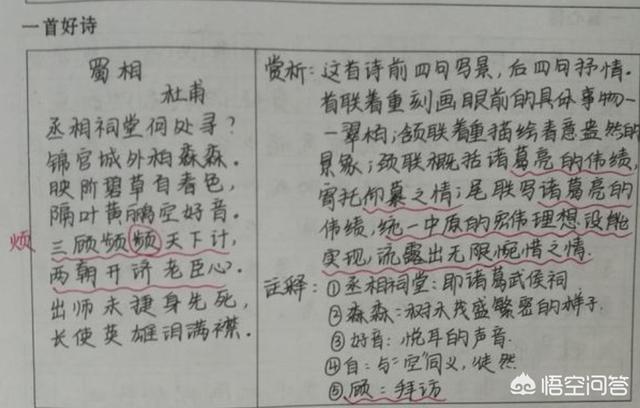 一首好诗
蜀相
杜甫
丞相祠堂何处寻？
锦官城外柏森森。
映阶碧草自春色，
隔叶黄鹂空好音。
三顾频频天下计，
烦
两朝开济老臣心。
出师未捷身先死，
长使英雄泪满襟。
赏析：这首诗前四句写景，后四句抒情。
首联着重刻画眼前的具体事物一
一翠柏；颔联着重描绘春意盎然的
景象；颈联概括诸葛亮的伟绩，
寄托仰慕之情；尾联写诸葛亮的
伟绩，统一中原的宏伟理想没能
实现，流露出无限惋惜之情.
注释：①丞相祠堂：即诸葛武侯祠
②森森：树木茂盛繁密的样子.
③好音：悦耳的声音.
④自：与“空”同义，徒然.
⑤顾：拜访
悟空问答